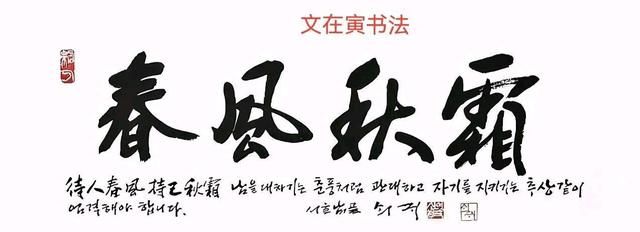 文在寅书法
春風秋霜
待人春風 持己秋霜 남을 대하기는 춘풍처럼 관대하고 자기를 지키기는 추상같이
엄격해야 합니다.
쇠귀